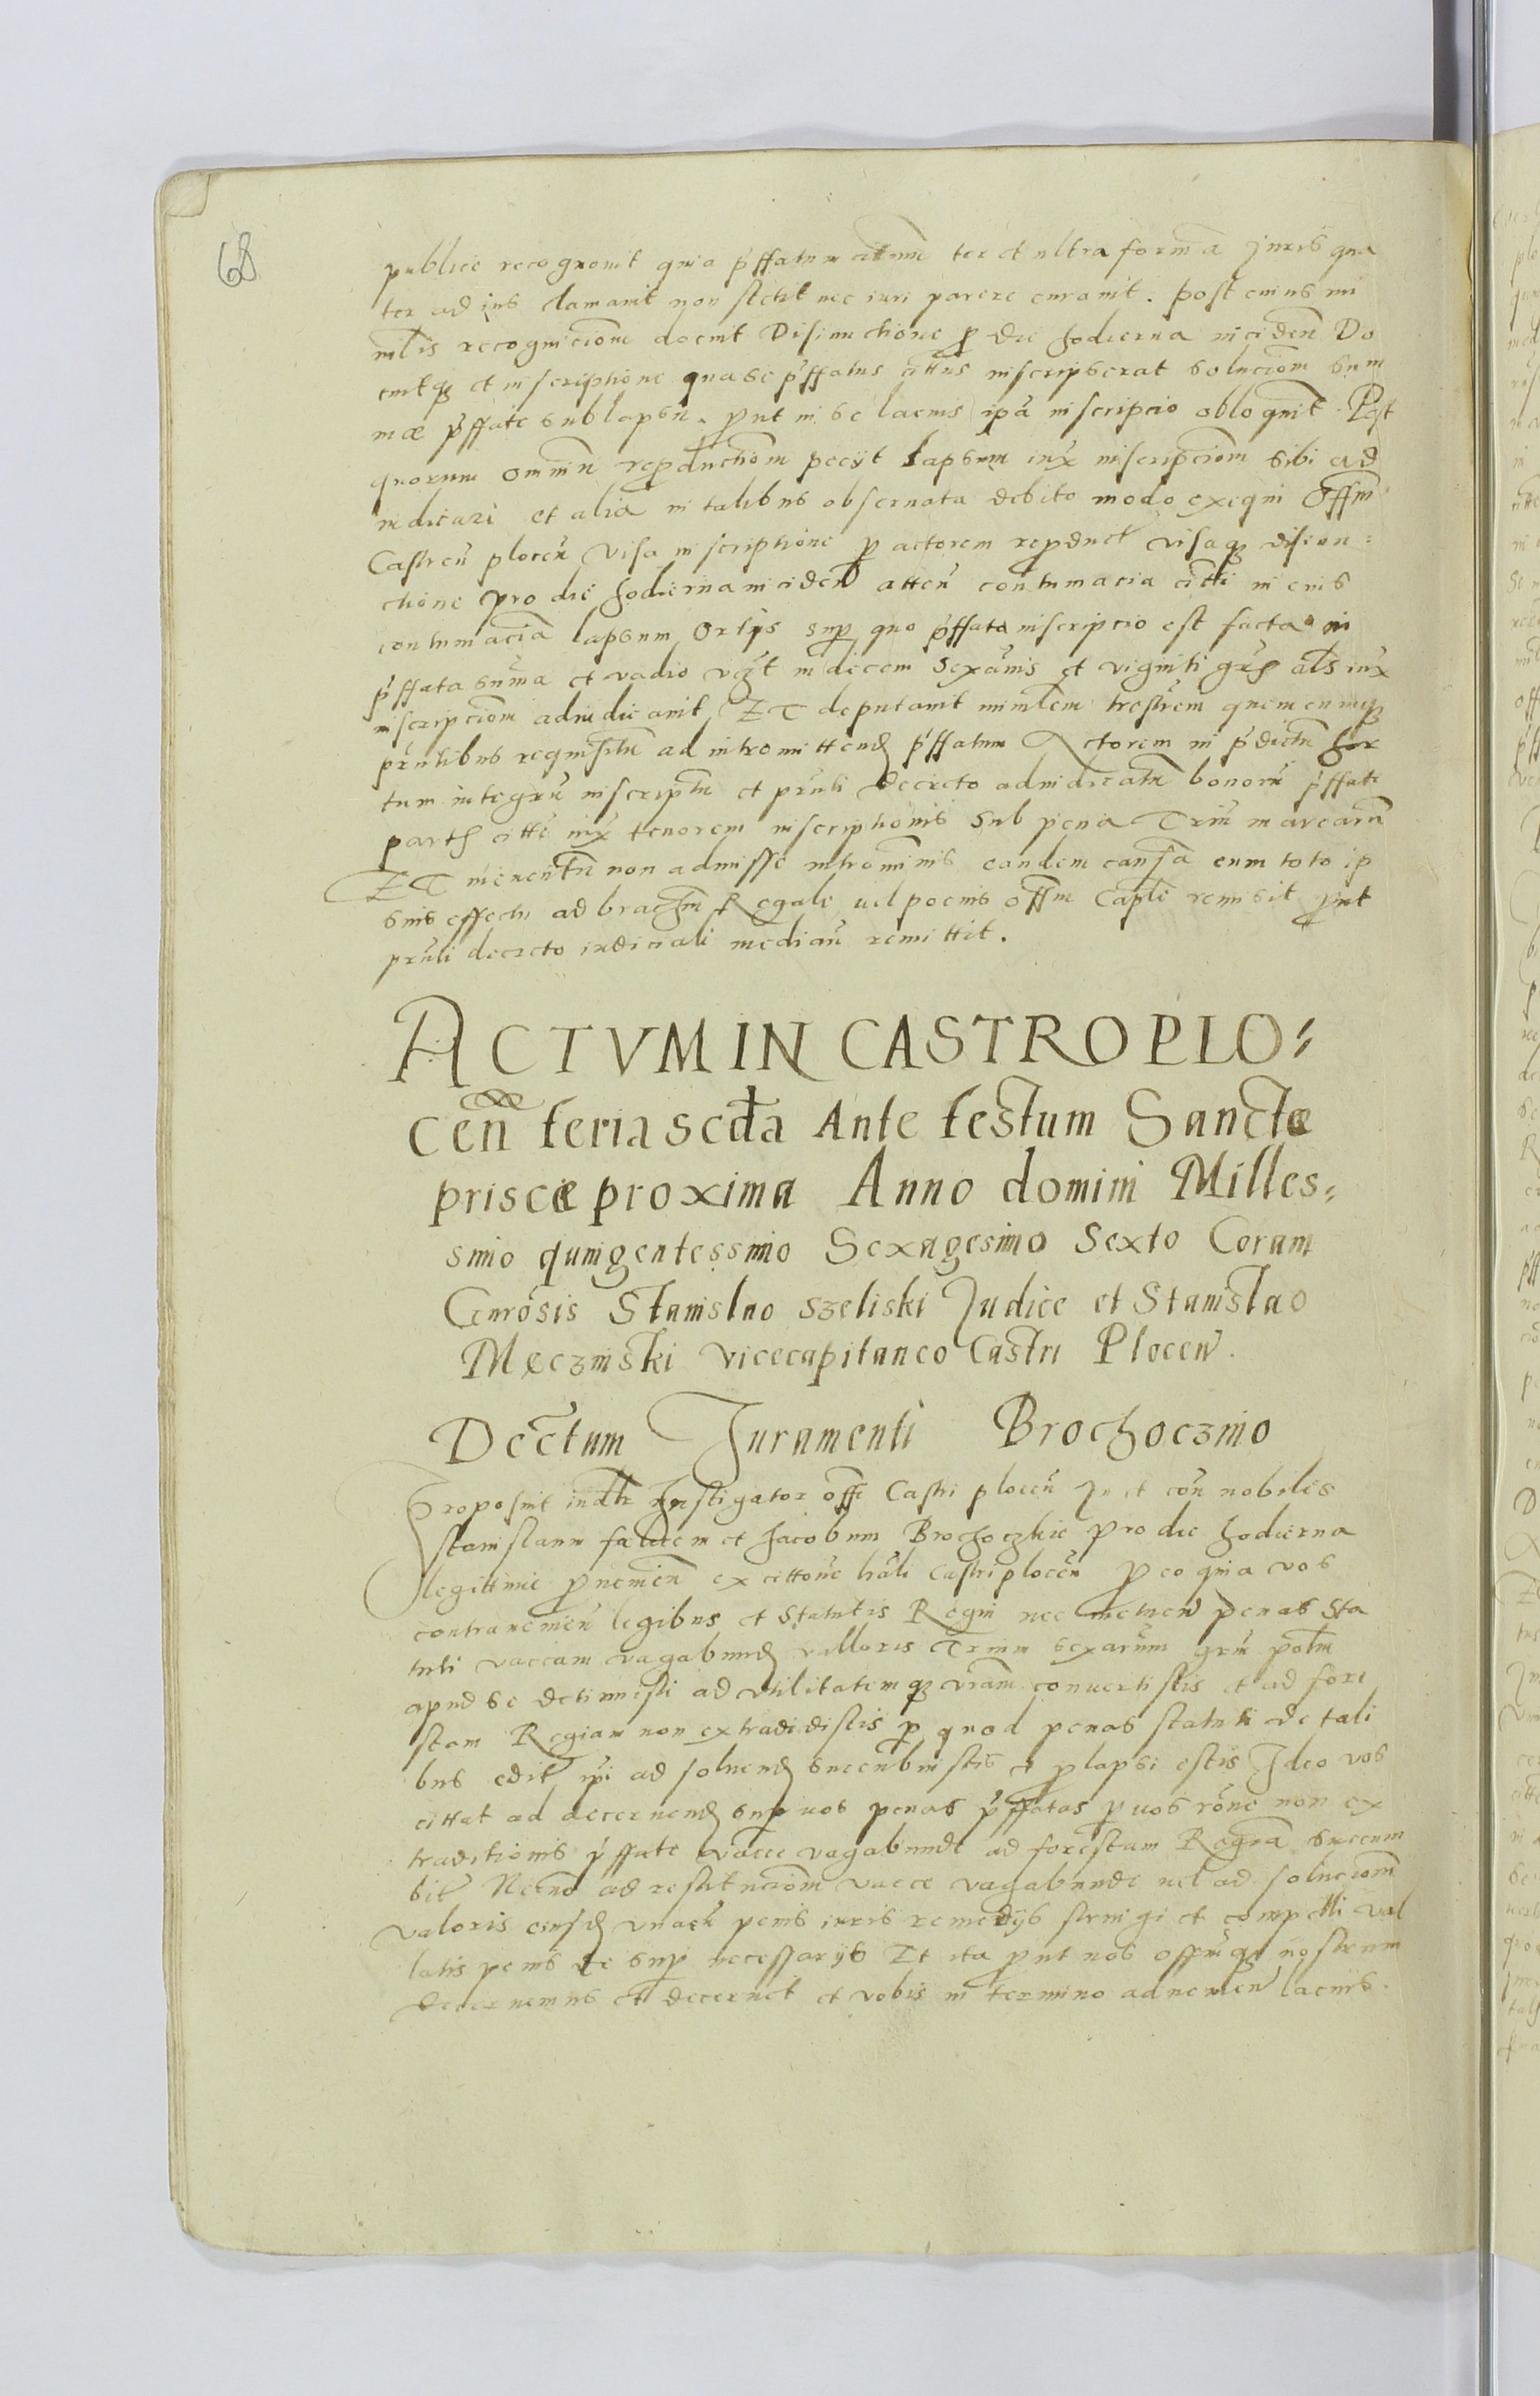 68
publice recognouit quia p̃ffatum cittatum ter et ultra formã Juris qua
ter ad ius clamauit non stetit nec iuri parere curauit. Post cuius mi
nĩlis recognicioñe docuit Disiunctione p die hodierna incideñ Do
cuitq; et inscriptione qua se p̃ffatus cittus inscripserat solucioñe sum
mæ p̃ffate sub lapsu. put in se lacius ipã inscripcio obloquit. Post
quorum omniũ reproductiõm peciit Lapsum iux̃ inscripcioñe sibi ad
iudicari et aliã in talibus obseruata debito modo exequi Offm̃
Castreñ ploceñ Visa inscriptione p actorem reproduct visaq; disiun:
ctione pro die hodierna inciden̄ atteñ contumacia citti in eius
contumaciã lapsum super quo p̃ffata inscripcio est facta in
p̃ffata summa et vadio vcȝt in decem sexãnis et viginti als iux̃
inscripcioñe adiudicauit ET deputauit ministrẽm quemcunq;
p̃ntibus requisitũ ad intromittend p̃ffatum Actorem in p̃dictũ hor
tum integrũ inscriptũ et p̃nti decreto adiudicatũ bonorũ p̃ffati
part citti iux̃ tenorem inscriptionis sub pena Triũ marcarũ
ET non admisse intromĩnis eandem causã cum toto ip
sius effectu ad brachiũ Regale vel pocius offm̃ Capłe remisit put
p̃nti decreto iudiciali mediañ remittit.
ACTVM IN CASTRO PLO:
Ceñ feria scd̃a Ante festum Sanctæ
priscæ proxima Anno domini Milles:
simo quingentessimo Sexagesimo Sexto Coram
Gnrosis Stanislao Szeliski Judice et Stanislao
Męczinski vicecapitaneo Castri Ploceñ.
Decr̃tum Juramenti Brochoczino
Proposuit Instigator offi Castri ploceñ In et coñ nobiles
Stanislaum et Jacobum Brochoczkie pro die hodierna
legittime pueniẽn ex cittoñe Castri ploceñ p eo quia vos
contraueniẽn legibus et Statutis Regni nec metueñ penas Sta
tuti vaccam vagabund valloris Trium sexarum grũ polm̃
apud se detinuisti ad vtilitatemq; vrãm conuertistis et ad fore
stam Regiam non extradidistis p quod penas statuti de tali
bus edit ipi ad soluend succubuistis et plapsi estis Ideo vos
cittat ad decernend sup vos penas p̃ffatas p vos rõne non ex
traditionis p̃ffate vacce vagabunde ad forestam Regiã succum
bit Necnõ ad restitucioñe vacce vagabunde vel ad solucioñe
valoris eiusd penis iuris remedijs stringi et compelli val
latis penis de sup necessarijs Et ita put nos offmq; nostrum
decernemus et decernet et vobis in termino adueniẽn lacius.